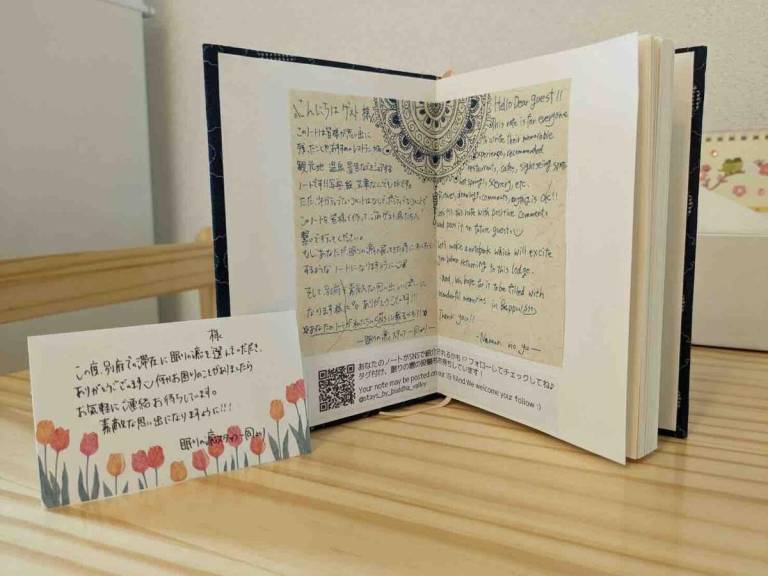 様
この度、別府での滞在に眠りの湯を選んでいただき、
ありがとうございます 何かお困りのことがありましたら
お気軽にご連絡お待ちしています。
素敵な思い出になりますように!!!
眠りの湯スタッフ一同より
こんにちは ゲスト 様
このノートは皆様が思い出に
残ったことやおすすめのレストラン、カフェ
観光地 温泉 景色などをシェアする
ノートです!! 写真 絵 言葉なんでもOKです。
このノートを皆様で作って、次のゲスト様たちへ
繋いで行ってください。
もしあなたが眠りの湯に戻ってきた時に
するような ノートになりますように
そして別府で素敵な思い出がいっぱいに
なります様に ありがとうございます!!!
あなたのノートが私たちのSNSに載るかも!!!
ー眠りの湯 スタッフ一同よりー
Hello Dear guest!!
This note is for everyone
to write their memorable
experience, recommended
restaurants, cafes, sightseeing spots,
hot springs, scenery, etc.
Pictures, drawings, comments, anything is OK!!!
this note with positive comments
and pass it on future guests
Let's make a notebook which will excite
you when returning to this lodge.
And, We hope for it to be filled with
wonderful memories in Beppu!
Thank you!!
-Nemuri no yu-
あなたのノートがSNSで紹介されるかも!? フォローしてチェックしてね♪
タグ付け、眠りの湯の投稿もお待ちしています!
Your note may be posted on our IG kind! We welcome your follow :)
@stays_by_buddha_valley